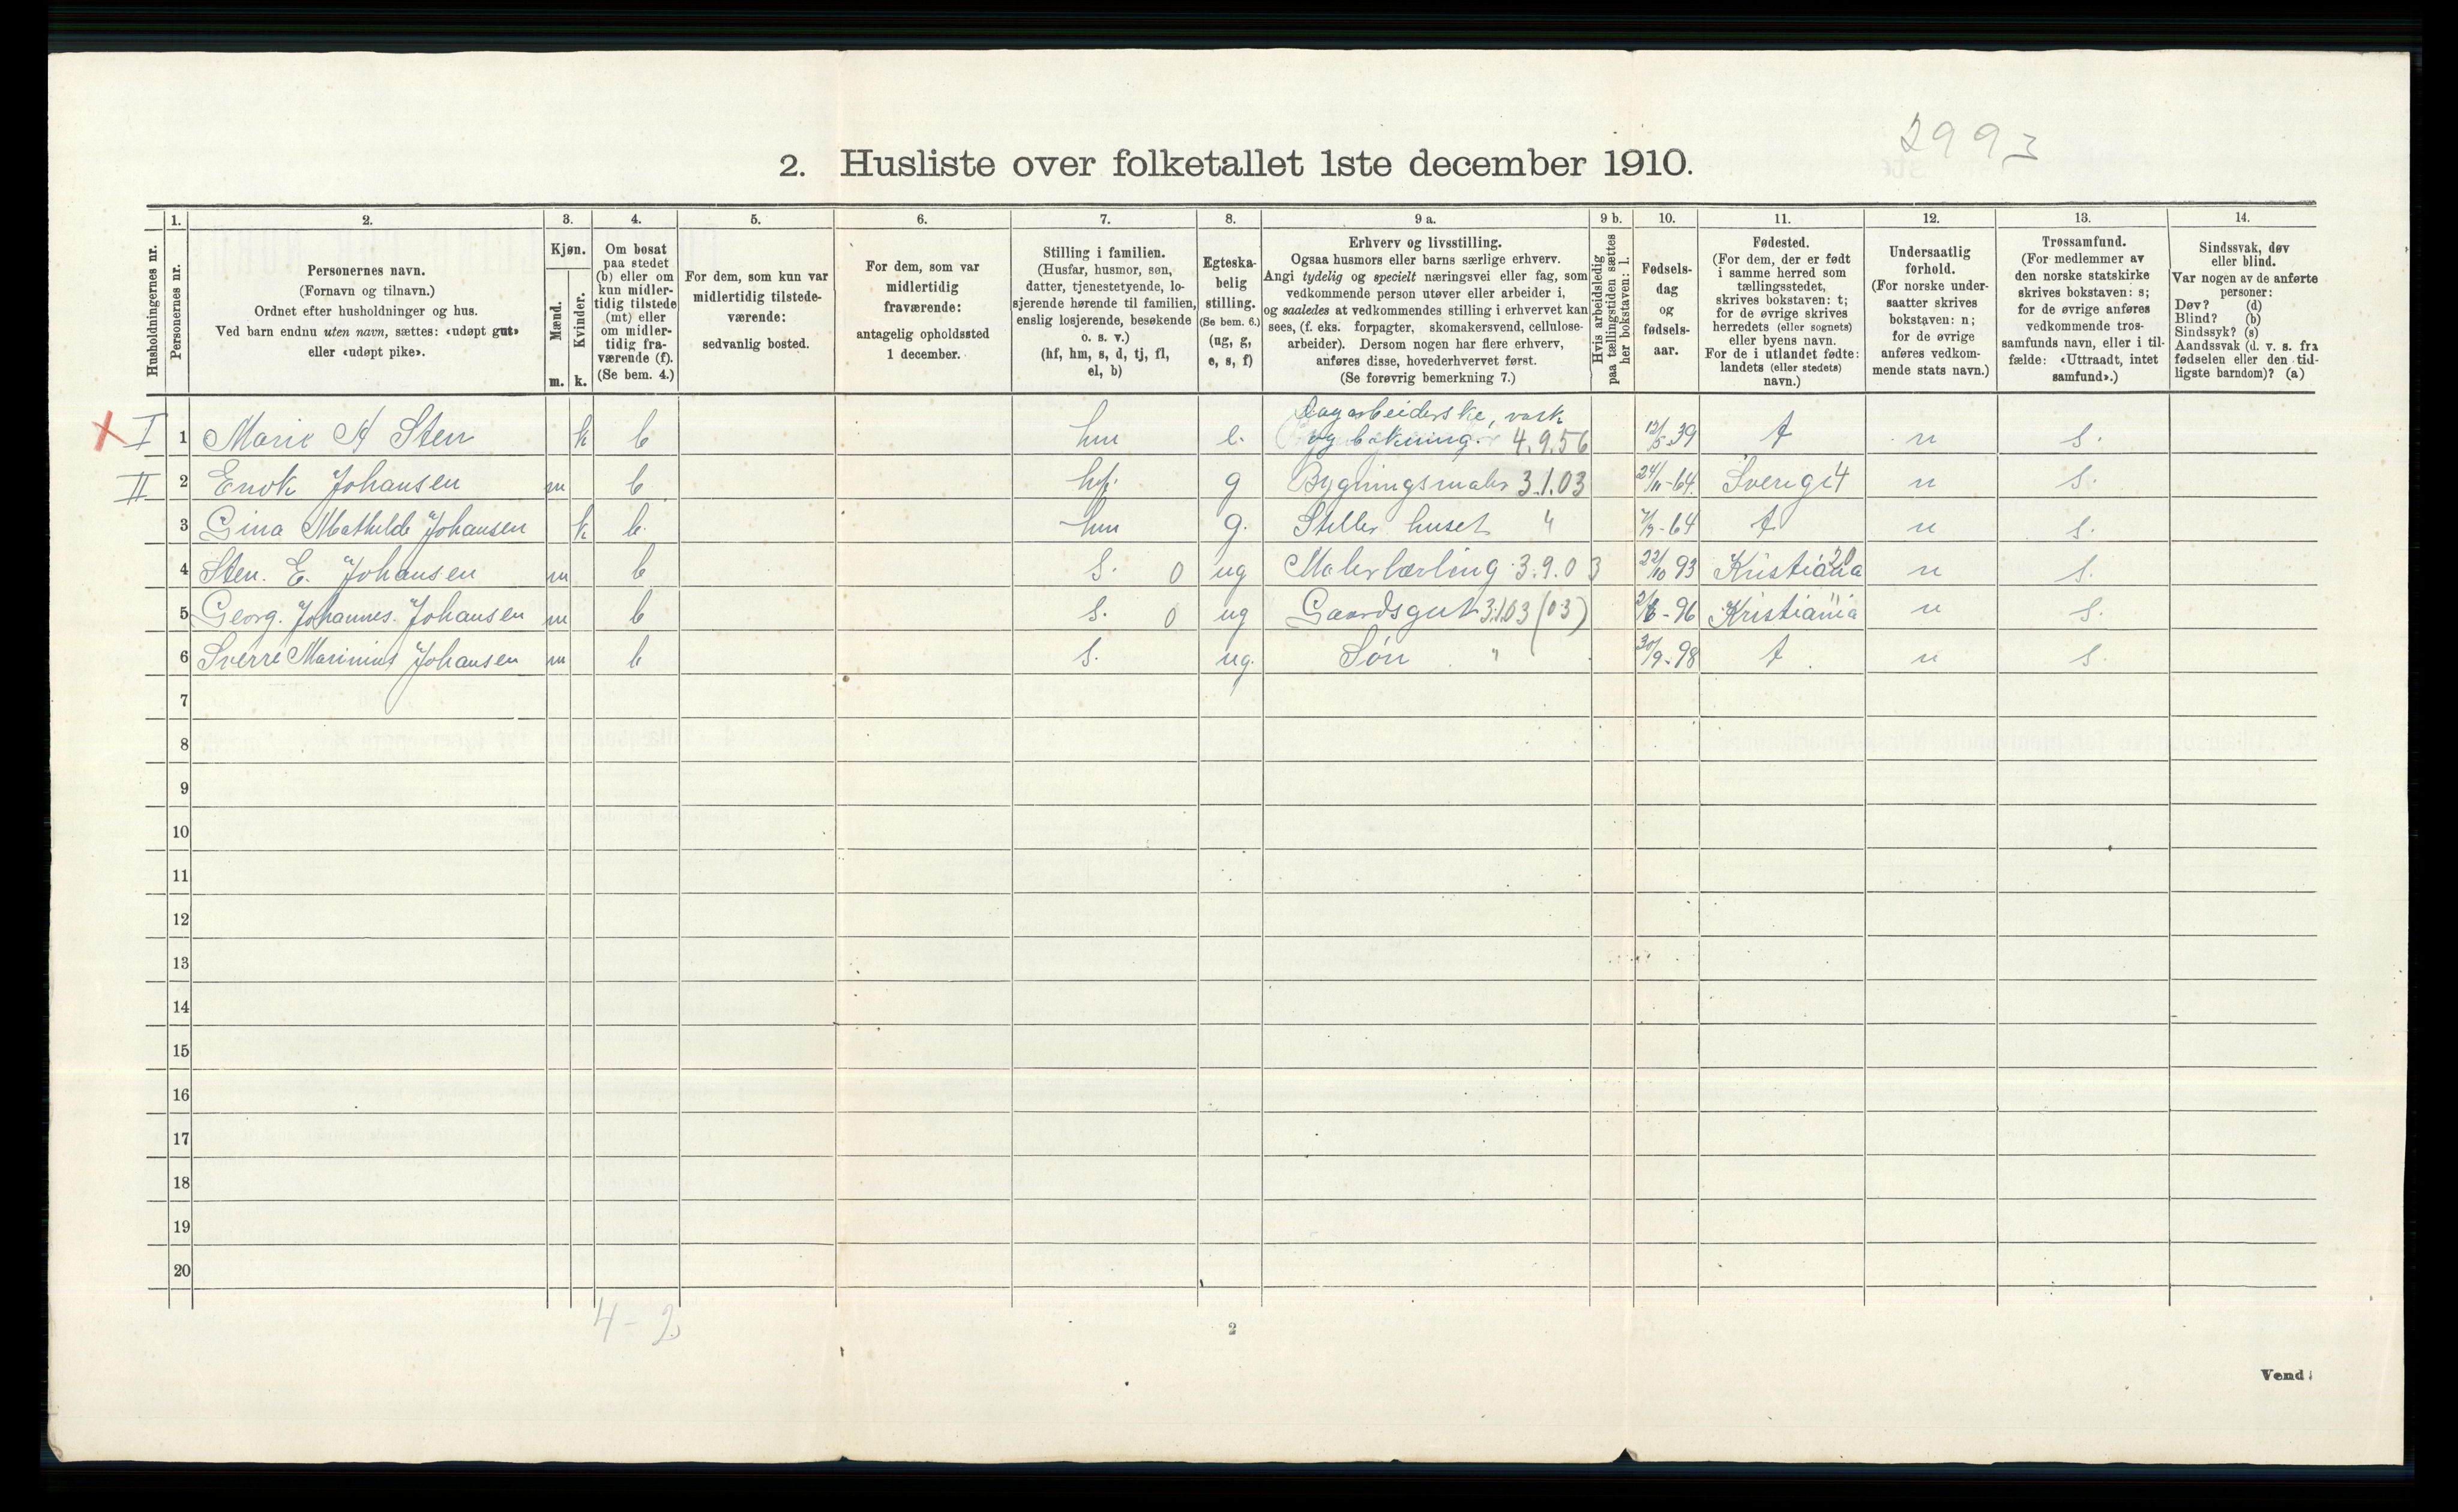 2993
2. Husliste over folketallet 1ste december 1910.
1. 2. 3. 4. 5. 6. 7. 8. 9 a. 9 b. 10. 11. 12. 13. 14.
Husholdningernes nr.
Personernes nr.
Personernes navn.
(Fornavn og tilnavn.)
Ordnet efter husholdninger og hus.
Ved barn endnu uten navn, sættes: «udøpt gut»
eller «udøpt pike».
Kjøn.
Mænd.
Kvinder.
m. k.
Om bosat
paa stedet
(b) eller om
kun midler-
tidig tilstede
(mt) eller
om midler-
tidig fra-
værende (f).
(Se bem. 4.)
For dem, som kun var
midlertidig tilstede-
værende:
sedvanlig bosted.
For dem, som var
midlertidig
fraværende:
antagelig opholdssted
1 december.
Stilling i familien.
(Husfar, husmor, søn,
datter, tjenestetyende, lo-
sjerende hørende til familien,
enslig losjerende, besøkende
o. s. v.)
(hf, hm, s, d, tj, fl,
el, b)
Egteska-
belig
stilling.
(Se bem. 6.)
(ug, g,
e, s, f)
Erhverv og livsstilling.
Ogsaa husmors eller barns særlige erhverv.
Angi tydelig og specielt næringsvei eller fag, som
vedkommende person utøver eller arbeider i,
og saaledes at vedkommendes stilling i erhvervet kan
sees, (f. eks. forpagter, skomakersvend, cellulose-
arbeider). Dersom nogen har flere erhverv,
anføres disse, hovederhvervet først.
(Se forøvrig bemerkning 7.)
Hvis arbeidsledig
paa tællingstiden sættes
her bokstaven: l.
Fødsels-
dag
og
fødsels-
aar.
Fødested.
(For dem, der er født
i samme herred som
tællingsstedet,
skrives bokstaven: t;
for de øvrige skrives
herredets (eller sognets)
eller byens navn.
For de i utlandet fødte:
landets (eller stedets)
navn.)
Undersaatlig
forhold.
(For norske under-
saatter skrives
bokstaven: n;
for de øvrige
anføres vedkom-
mende stats navn.)
Trossamfund.
(For medlemmer av
den norske statskirke
skrives bokstaven: s;
for de øvrige anføres
vedkommende tros-
samfunds navn, eller i til-
fælde: «Uttraadt, intet
samfund».)
Sindssvak, døv
eller blind.
Var nogen av de anførte
personer:
Døv? (d)
Blind? (b)
Sindssyk? (s)
Aandssvak (d. v. s. fra
fødselen eller den tid-
ligste barndom)? (a)
Dagarbeiderske, vask
X I 1 Marie A Sten k b hm e. og bakning. 4.9.56 12/5 39 t n s.
II 2 Enok Johansen m b hf. g Bygningsmaler 3.1.03 24/11-64. Sverige 4 n s.
3 Gina Mathilde Johansen k b. hm g. Steller huset " 7/7-64 t n s.
4 Sten. E. Johansen m b s. 0 ug Malerlærling 3.9.03 22/10 93 Kristiania 20 n s.
5 Georg. Johannes. Johansen m b s. 0 ug Gaardsgut 3.1.03 (03) 2/6-96 Kristiania " n s.
6 Sverre Marinius Johansen m b s. ug. Søn " 30/9-98 t n s.
7
8
9
10
11
12
13
14
15
16
17
18
19
20
4-2
2
Vend!